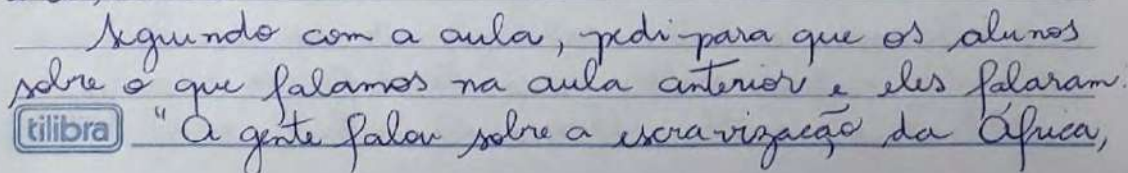 Seguindo com a aula, pedi para que os alunos
sobre o que falamos na aula anterior e eles falaram:
tilibra "A gente falou sobre a escravização da África,